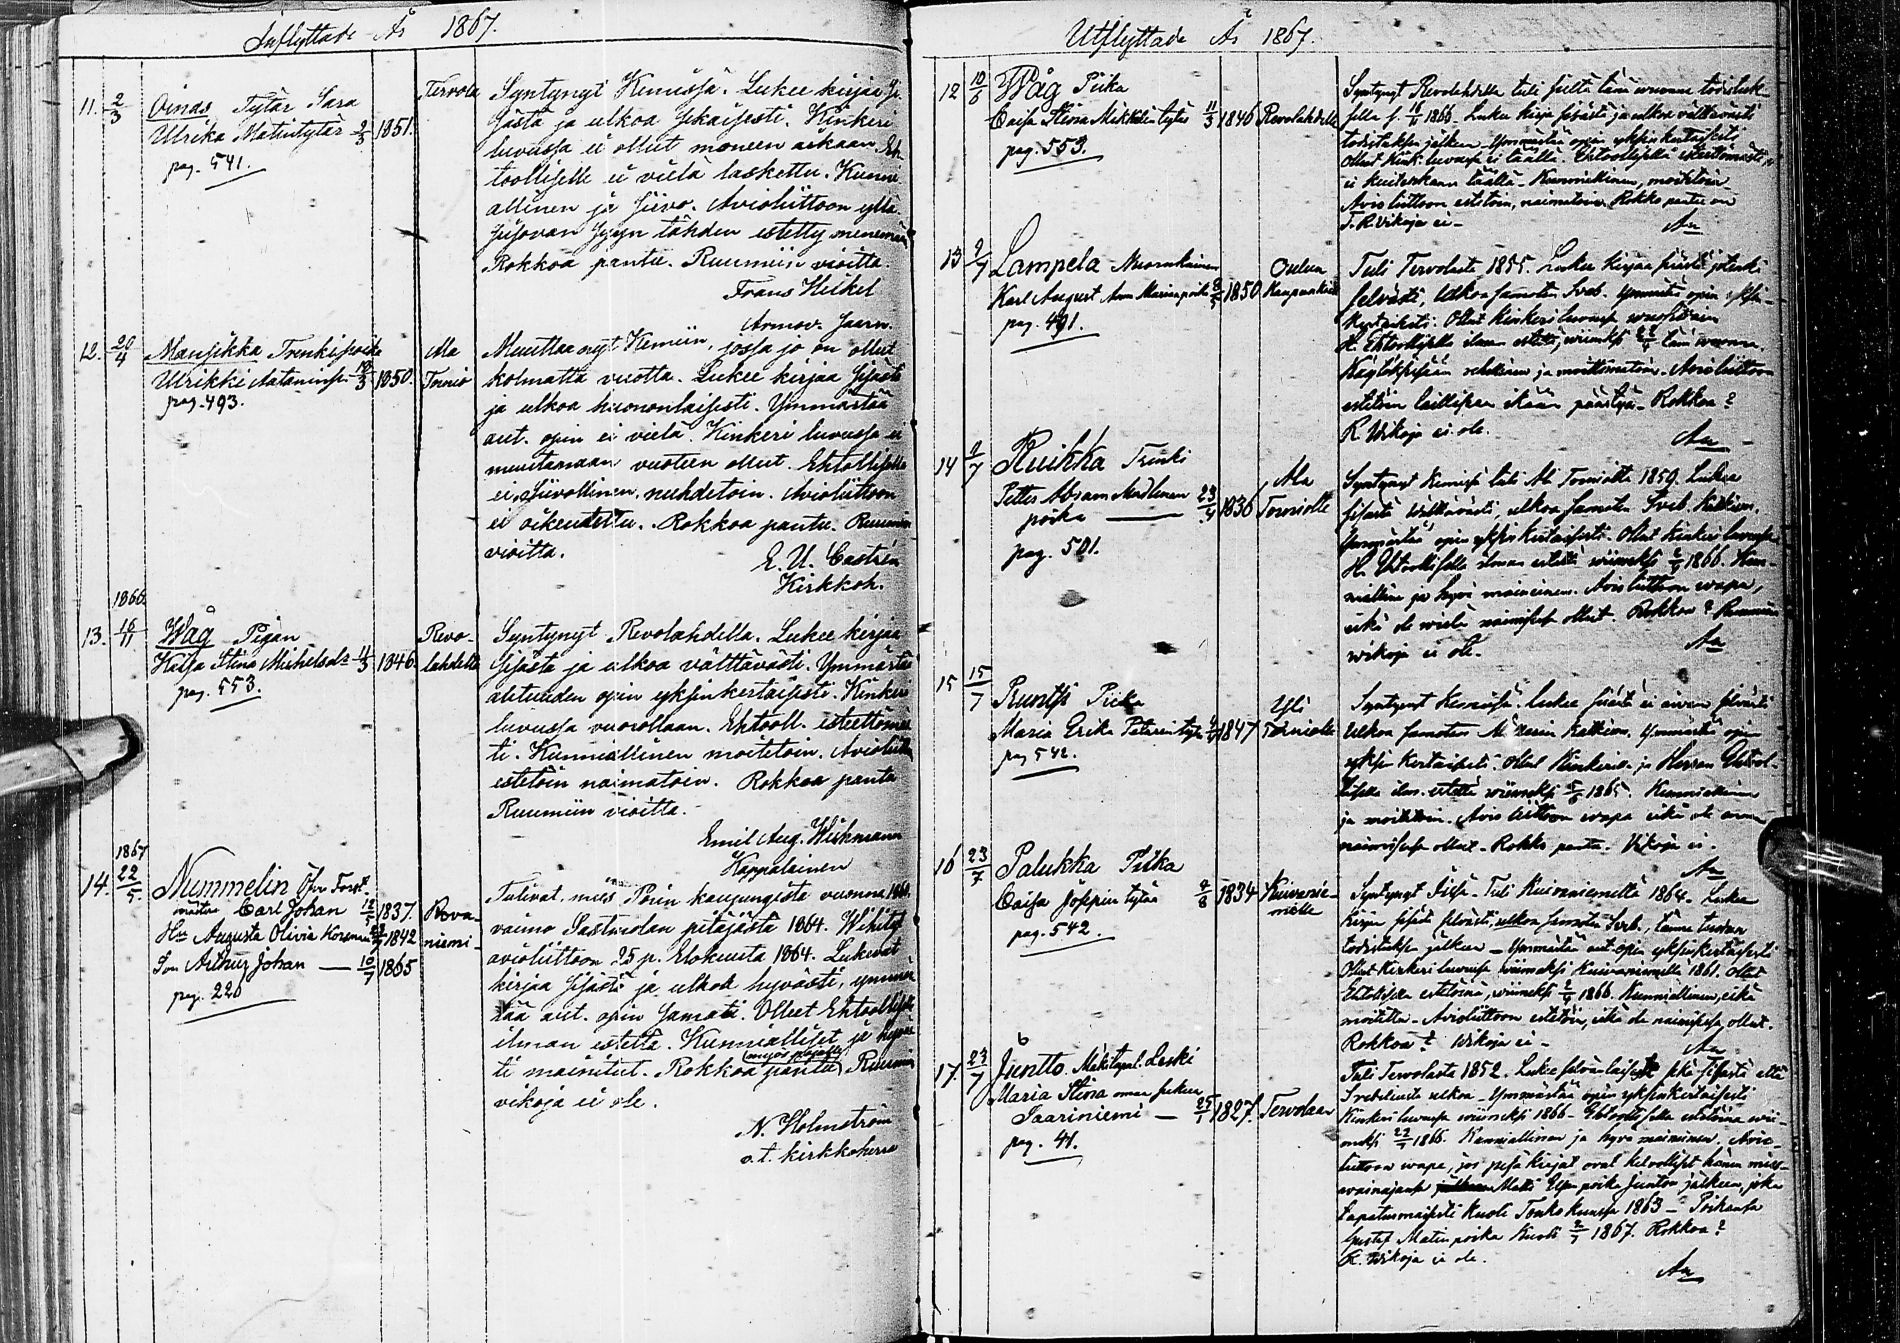 Inflyttade År 1867.
11. 2/3 Oinas, Tytär Sara
Ulrika Matintytär 2/3 1851.
pag. 541.
Tervola
Syntynyt Kemissä. Lukee kirjaa si-
sästä ja ulkoa
luvussa ei ollut moneen aikaan. Eh-
toolliselle ei vielä laskettu. Kunni-
allinen ja siivo. Avioliittoon yllä
tähden estetty menemään
Rokkoa pantu. Ruumiin vioitta.
Frans Heikel
Armov. Saarn.
12. 20/4 Mansikka Trenkipoika
Ulrikki Aataminp. 1850.
pag. 493.
Ala
Tornio
Muuttaa nyt Kemiin, jossa jo on ollut
kolmatta vuotta. Lukee kirjaa sisästä
ja ulkoa huononlaisesti. Ymmärtää
aut. opin ei vielä. Kinkeri luvussa ei
muutamaan vuoteen ollut. Ehtollisella
ei. Siivollinen, nuhdetoin. Avioliittoon
ei oikeutettu. Rokkoa pantu. Ruumiin
vioitta.
E. U. Castrén
Kirkkoh.
1866.
13. 16/11 Wåg Pigan
Kaisa Stina Mickelsdr 11/3 1846.
pag. 553.
Revo-
lahdelta
Syntynyt Revolahdella. Lukee kirjaa
sisästä ja ulkoa välttävästi. Ymmärtää
autuuden opin yksinkertaisesti. Kinkeri
luvussa vuorollaan. Ehtooll. esteettömäs-
ti. Kunniallinen moitetoin. Avioliittoon
estetöin naimatoin. Rokkoa pantu
Ruumiin vioitta.
Emil Aug. Wichmann
Kappalainen
1867
14. 22/5 Nummelin Öfv. Forst-
mästar Carl Johan 1837.
Hu Augusta Olivia 1842
Son Arthur Johan — 10/7 1865
pag. 220
Rova-
niemi
Tulivat, mies Porin kaupungista vuonna
vaimo Sastmolan pitäjästä 1864. Wihityt
avioliittoon 25 p. Elokuuta 1864. Lukevat
kirjaa sisästä ja ulkoa hyvästi, ymmär-
tää aut. opin samate. Olleet Ehtoollisella
ilman estettä. Kunnialliset ja hyväs-
ti mainitut. Rokkoa pantu (myös pojalla) Ruumiin
vikoja ei ole.
N. Holmström
v. t. kirkkoherra
Utflyttade År 1867.
12 10/6 Wåg Piika
Caisa Stina Mikkelintytär 11/3 1846 Revolahdelle
pag. 553.
Syntynyt Revolahdella tuli sieltä tänne
sella f. 16/11 1866. Lukee kirjaa sisästä ja ulkoa välttävästi
todistuksen jälkeen. Ymmärtää opin yksinkertaisesti
Ollut Kink. luvussa ei täällä. Ehtoollisella esteettömästi,
ei kuitenkaan täällä. Kunniallinen, moitetoin
Avioliittoon estetöin, naimatoin. Rokko pantu on
Vikoja ei –
13 9/7 Lampela Nuorukainen
Karl August Anna Mariapoika 1850
pag. 491.
Oulun
Kaupunkiin
Tuli Tervolasta 1855. Lukee kirjaa sisästä jotenki
selvästi, ulkoa samoten Sveb. Ymmärtää opin yksin-
kertaisesti. Ollut Kinkeriluvussa
H. Ehtoollisella ilman estettä, viimeksi
ja moittimatoin. Avioliittoon
estetöin laillisaan ikään päästyä. Rokkoa?
R. Wikoja ei ole.
14 9/7 Kuikka Trenki
Petter Abram
poika — 23/4 1836
pag. 501.
Ala
Torniolle
Syntynyt Kemissä tuli Ala Torniolta 1859. Lukee
sisästä välttävästi, ulkoa samoten Sveb. Katkism.
Ymmärtää opin yksinkertaisesti. Ollut Kinkeri luvussa
H. Ehtoollisella ilman estettä viimeksi 1866. Kun-
niallinen ja hyvä maineinen. Avioliittoon wapa,
eikä ole vielä naimisissa ollut. Rokkoa? Ruumiin
wikoja ei ole.
15 15/7 Runtti Piika
Maria Erika Petarintytär 1847
pag 542.
Yli
Torniolle
Syntynyt Kemissä. Lukee sisästä ei aivan selvästi
Ulkoa samoten Katkism. Ymmärtää opin
yksinkertaisesti. Ollut Kinkeris. ja Herran Ehtool-
lisella ilm. estettä viimeksi 1865. Kunniallinen
ja moitetoin. Avioliittoon wapa eikä ole ennen
naimisissa ollut. Rokko pantu. Vikoja ei.
16 23/7 Palukka Piika
Caisa Josepin tytär 1834
pag. 542.
Kuivanie-
melle
Syntynyt Iissä. Tuli Kuivaniemeltä 1864. Lukee
kirjan sisästä selvästi, ulkoa samoten Sveb.,
todistuksen jälkeen – Ymmärtää aut. opin yksinkertaisesti
Ollut Kinkeriluvussa viimeksi Kuivaniemellä 1861. Ollut
Ehtoollisella estetöinnä, viimeksi 1866. Kunniallinen, eikä
moitetta. Avioliittoon estetöin, eikä ole naimisissa ollut.
Rokkoa? Wikoja ei –
17. 23/7 Juntto. Mäkitupal. Leski
Maria Stina
Saariniemi — 1827. Tervolaan
pag. 41.
Tuli Tervolasta 1852. Lukee
ulkoa. Ymmärtää opin yksinkertaisesti
Kinkeri luvussa viimeksi 1866 – Ehtoollisella estetöinnä vii-
meksi 1866. Kunniallinen ja hyvä maineinen. Avio-
liittoon wapa, jos pesä kirjat ovat kelvolliset hänen mies-
vainajansa Matti poika Junton jälkeen, joka
tapaturmaisesti kuoli kuussa 1863 – Poikansa
Gustaf Matinpoika kuoli 1867. Rokkoa?
R. Wikoja ei ole.